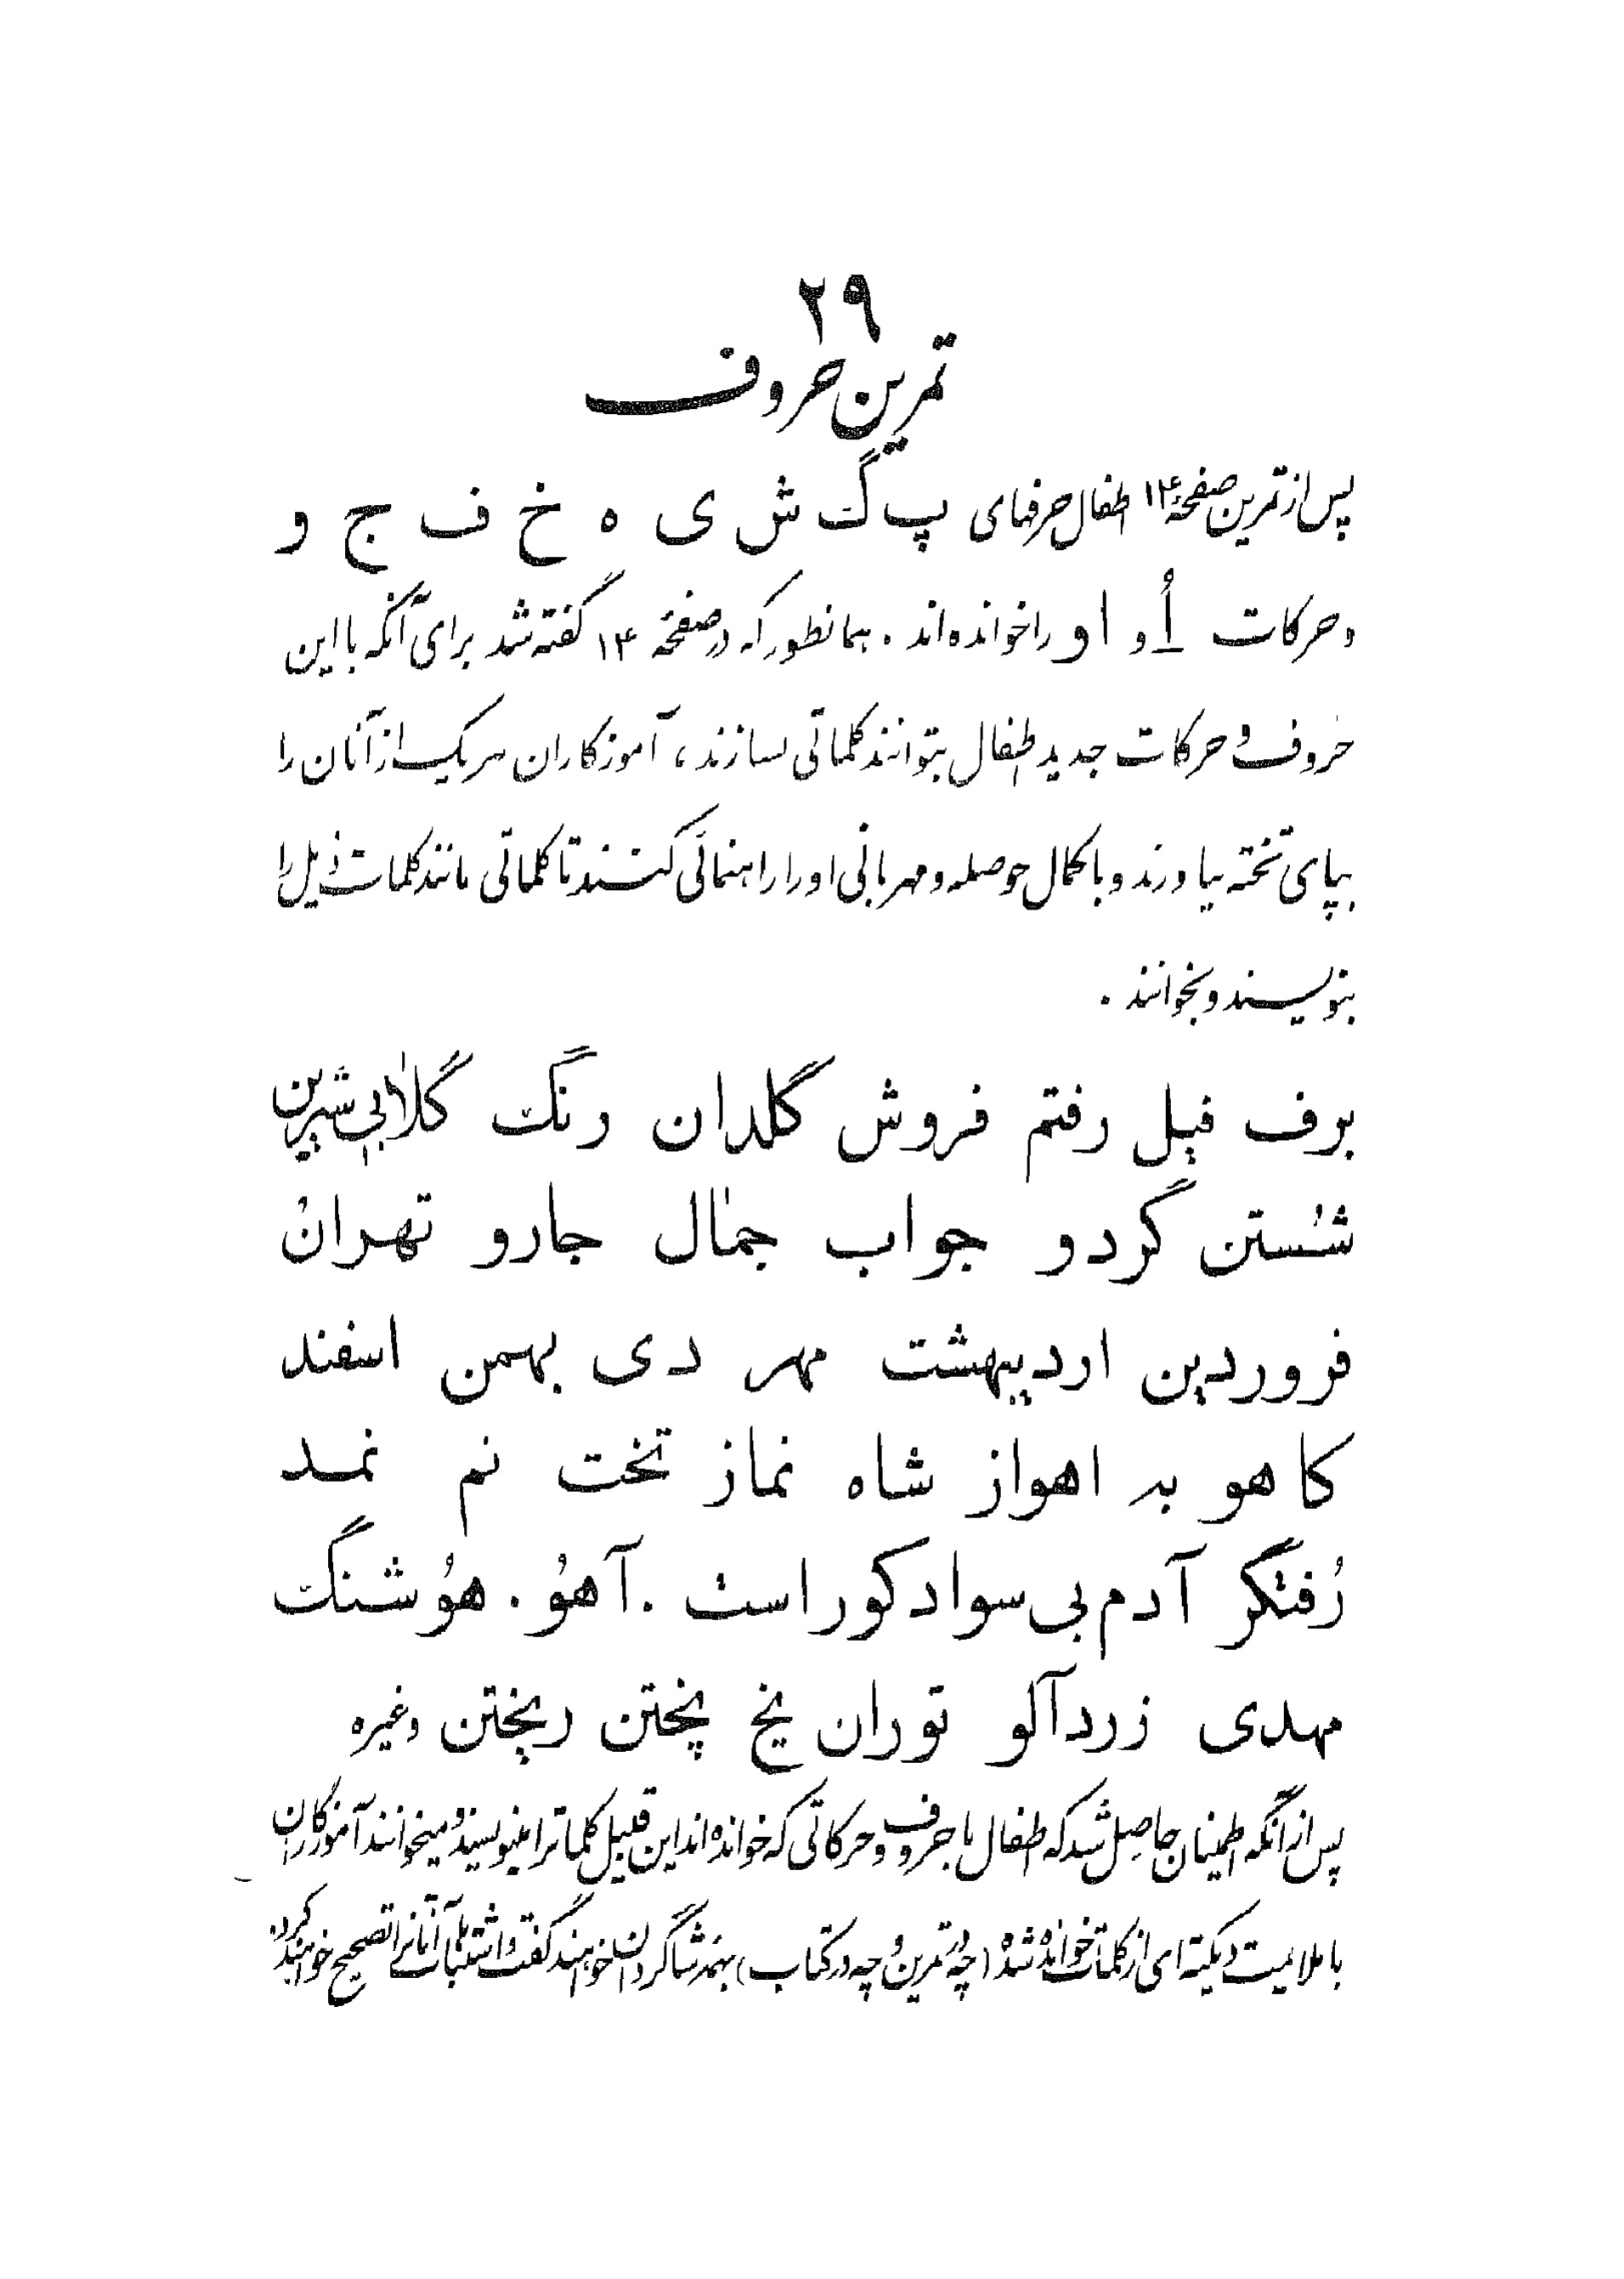 ۲۹
تمرین حروف
پس از تمرین صفحهٔ ۱۴ اطفال حرفهای پ گ ش ی ه خ ف ج و
و حرکات اُ و او را خوانده‌اند . همانطور که در صفحهٔ ۱۴ گفته شد برای آنکه با این
حروف و حرکات جدید اطفال بتوانند کلماتی بسازند ، آموزگاران هر یک از آنان را
بپای تخته بیاورند و با کمال حوصله و مهربانی او را راهنمائی کنند تا کلماتی مانند کلمات ذیل را
بنویسند و بخوانند .
برف فیل رفتم فروش گلدان رنگ گلابی شیرین
شُستن گردو جواب جمال جارو تهران
فروردین اردیبهشت مهر دی بهمن اسفند
کاهو به اهواز شاه نماز تخت نم نمد
رُفتگر آدم بی سواد کور است . آهو . هوشنگ
مهدی زردآلو توران یخ پختن ریختن و غیره
پس از آنکه اطمینان حاصل شد که اطفال با حروف و حرکاتی که خوانده‌اند این قبیل کلمات را مینویسند و میخوانند آموزگاران
با ملایمت دیکته‌ای از کلمات خوانده شده (چه در تمرین و چه در کتاب) بهمه شاگردان خواهند گفت و اشتباهات آنان را تصحیح خواهند کرد.